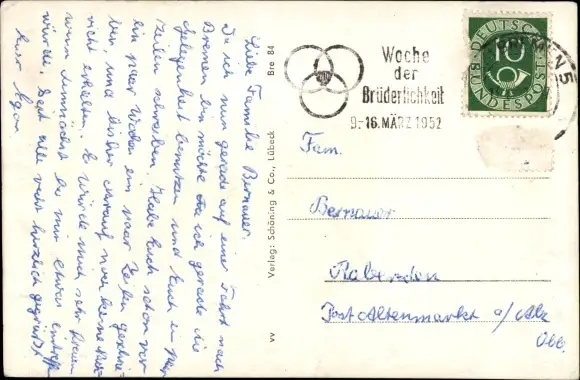 Liebe Familie Bernauer.
Da ich nun gerade auf einer Fahrt nach
Bremen bin möchte da ich gerade die
Gelegenheit benutzen und Euch ein paar
Zeilen schreiben. Habe Euch schon vor
ein paar Wochen ein paar Zeilen geschrie-
ben, und bisher darauf noch keine
nicht erhalten. Es würde mich sehr freuen
wenn demnächst bei mir etwas eintreffen
würde. Seid alle recht herzlich gegrüßt
Euer Egon
Bre 84
Verlag: Schöning & Co., Lübeck
VV
Woche
der
Brüderlichkeit
9.-16. MÄRZ 1952
DEUTSCHE
BUNDESPOST
10
BREMEN 5
Fam.
Bernauer
Post Altenmarkt a/Alz
Obb.